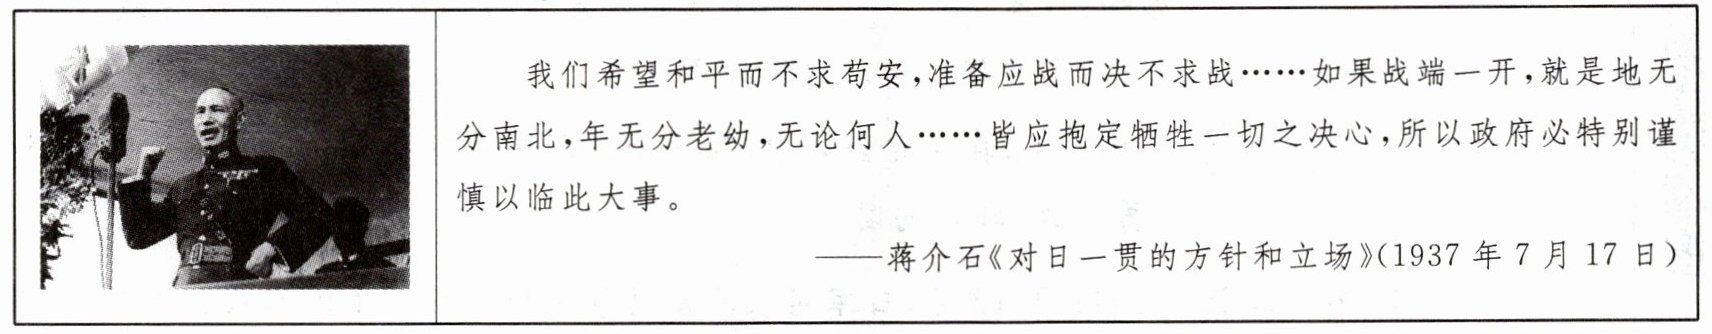 我们希望和平而不求苟安，准备应战而决不求战……如果战端一开，就是地无
分南北，年无分老幼，无论何人……皆应抱定牺牲一切之决心，所以政府必特别谨
慎以临此大事。
——蒋介石《对日一贯的方针和立场》(1937年7月17日)